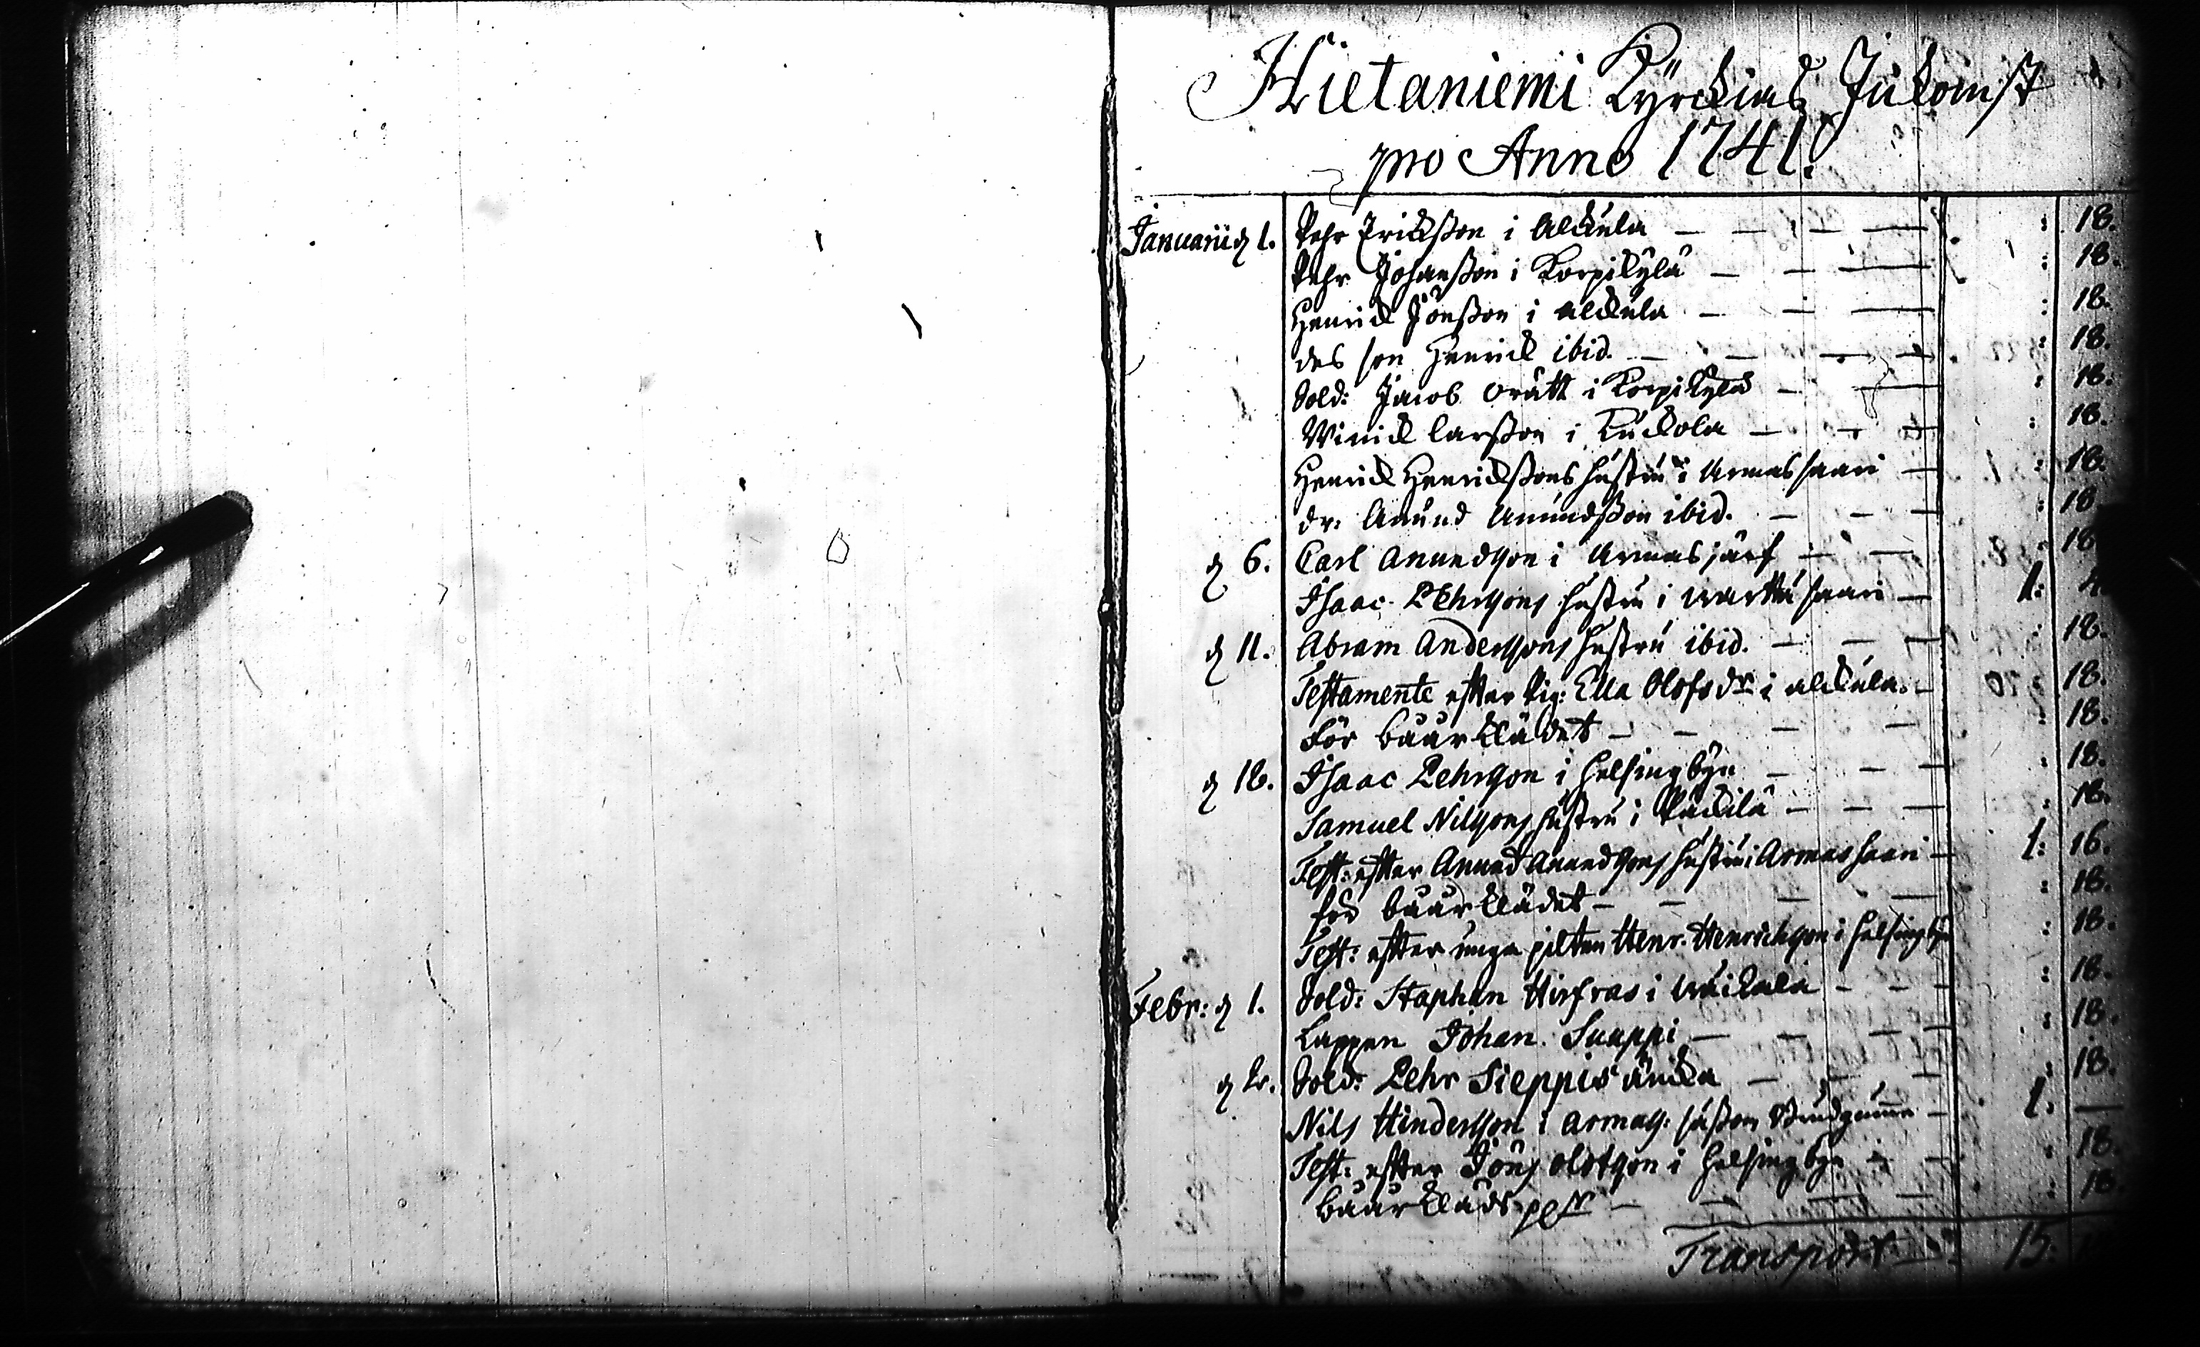 Hietaniemi Kyrckias Inkomst
pro Anno 1741.
Januarii d 1. Pehr Erickßon i Alckula — — — : 18.
Pehr Johanßon i Korpikylä — — — : 18.
Henrick Jönßon i Alckula — — — : 18.
des son Henrick ibid. — — — : 18.
Sold: Jacob Orätt i Korpikylä — — : 18.
Winick Larßon i Kuckola — — — : 18.
Henrick Henrickßons hustru i Armassaari — : 18.
dr: Anund Anundßon ibid. — — — : 18
d 6. Carl Anundson i Armasjärf — — : 18
Isaac Pehrsons hustru i Marckusaari — 1: 4.
d 11. Abram Anderssons hustru ibid. — — — : 18.
Testamente efter Pig: Ella Olofsdr i Alckula. — : 18.
För baarklädet — — — — : 18.
d 18. Isaac Pehrson i Helsingbyn — — — : 18.
Samuel Nilsons hustru i Päckilä — — — : 18.
Test: efter Anund Anundsons hustru i Armassaari — 1: 16.
för baarklädet — — — — : 18.
Test: efter unga pilten Henr. Henrichson i Helsingbyn : 18.
Febr: d 1. Sold: Staphan Hirfras i — — — : 18.
Lappen Johan Suappi — — — : 18.
d 2. Sold: Pehr Sieppis änka — — — : 18.
Nils Hindersson i Armas: såßom Brudgumme — 1: —
Test: efter Jöns Olofson i Helsingbyn — — : 18.
baarkläds — — — — : 18.
Transport — 15: